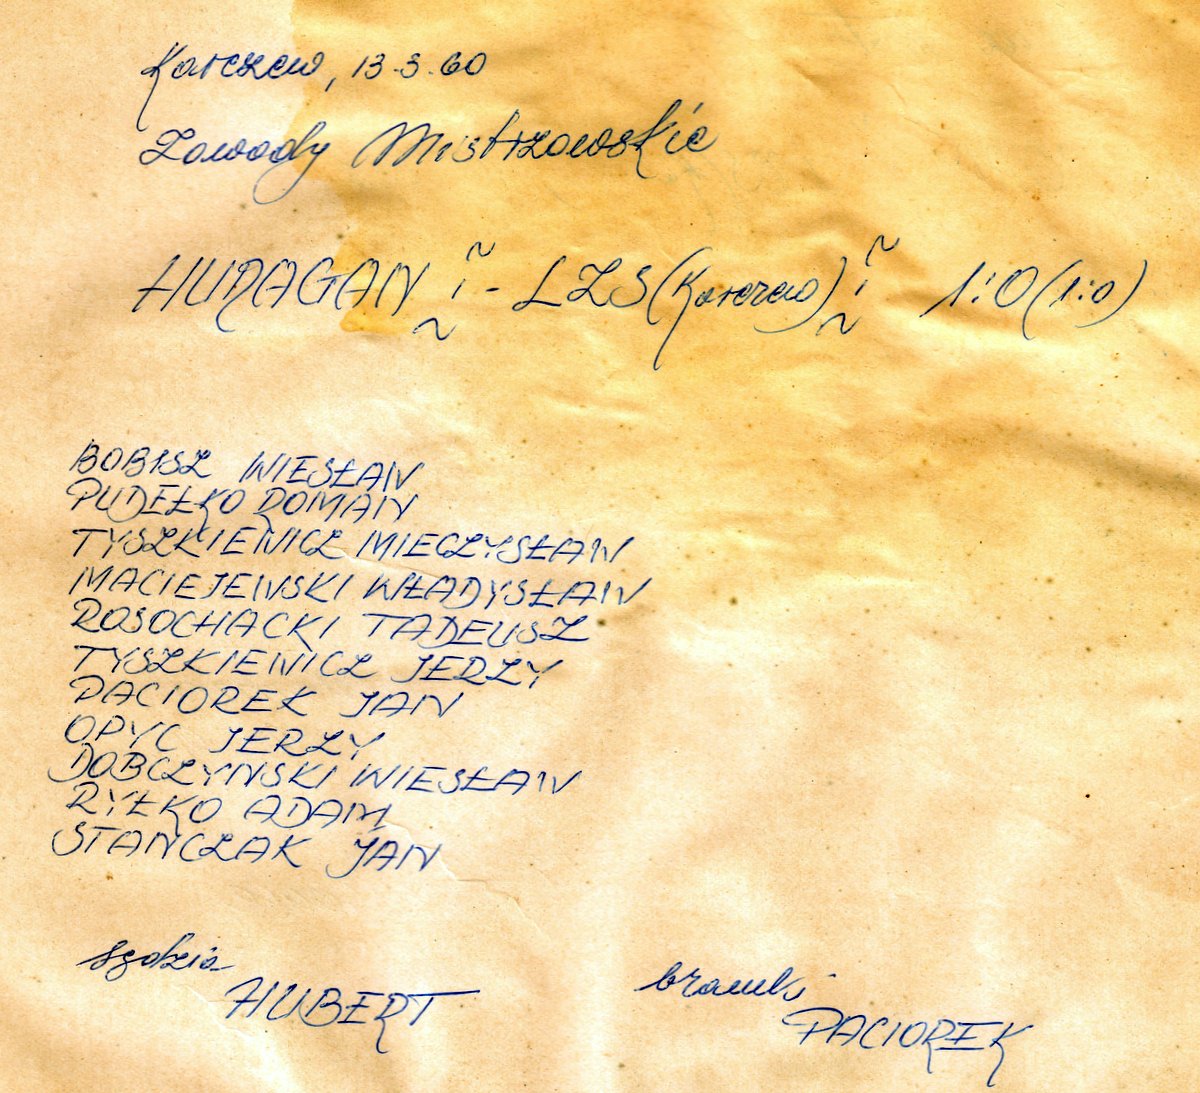 Karczew, 13-3-60
Zawody Mistrzowskie
HURAGAN ĩ - LZS (Karczew) ĩ 1:0 (1:0)
BOBISZ WIESŁAW
PUDEŁKO ROMAN
TYSZKIEWICZ MIECZYSŁAW
MACIEJEWSKI WŁADYSŁAW
ROSOCHACKI TADEUSZ
TYSZKIEWICZ JERZY
PACIOREK JAN
OPYC JERZY
DOBCZYNSKI WIESŁAW
RYŁKO ADAM
STANCZAK JAN
sędzia
HUBERT
bramki
PACIOREK